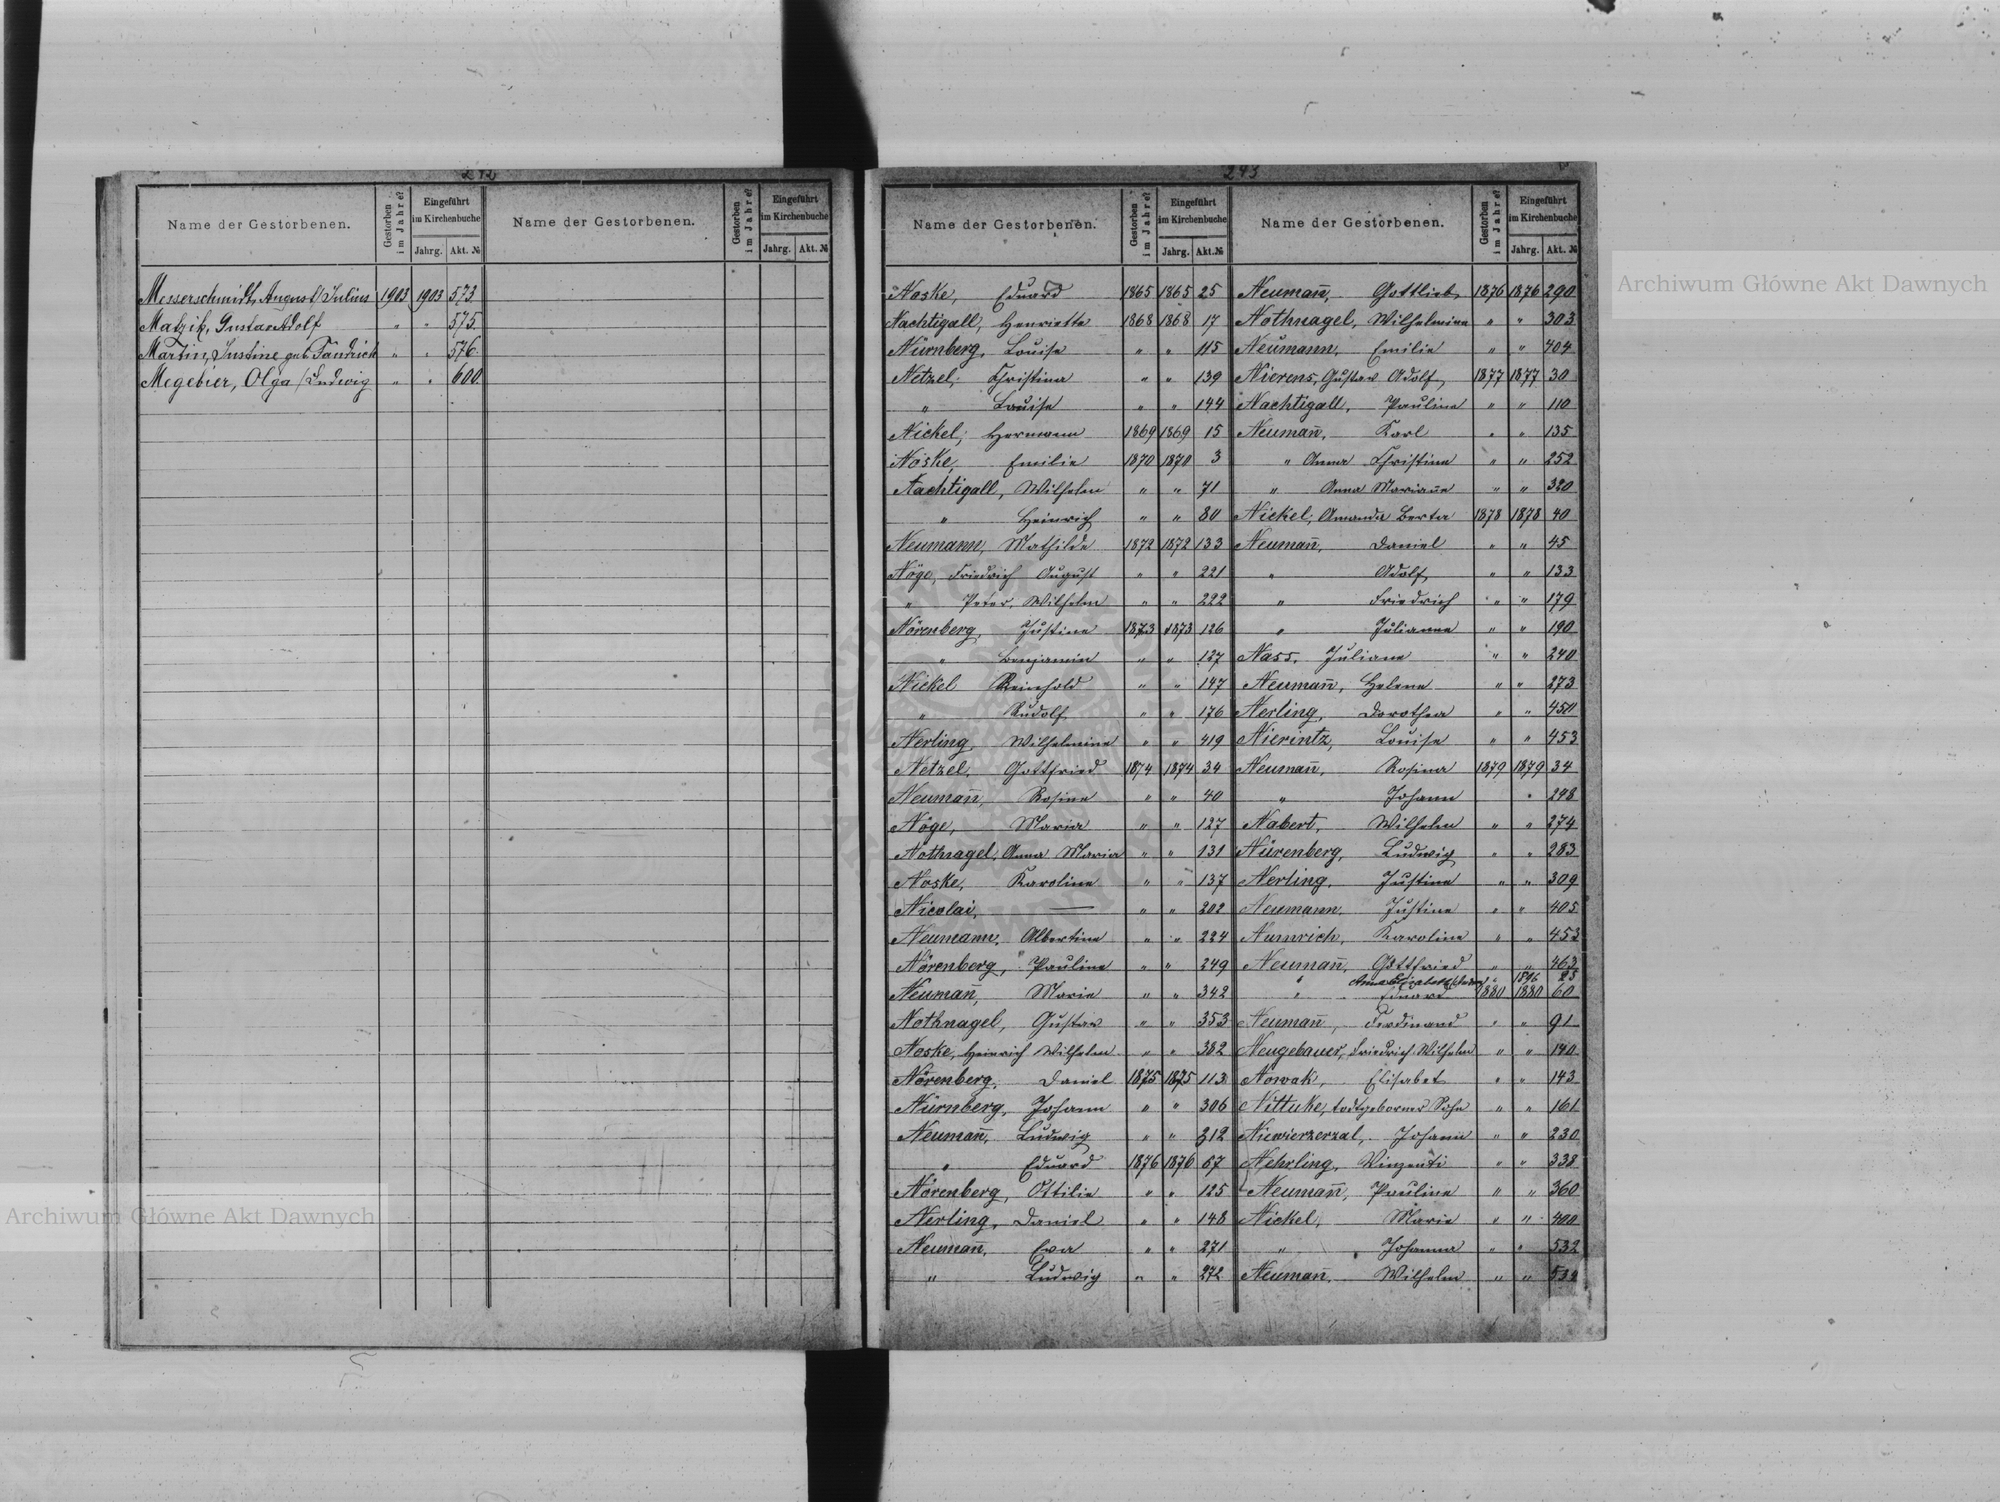 Archiwum Główne Akt Dawnych
272
Name der Gestorbenen. Gestorben im Jahre? Eingeführt im Kirchenbuche Jahrg. Akt. № Name der Gestorbenen. Gestorben im Jahre? Eingeführt im Kirchenbuche Jahrg. Akt. №
Messerschmidt, August/Julius 1903 1903 573
Matzik, Gustav Adolf " " 575.
Martin, Justine geb. Fandrich " " 576.
Megebier, Olga/Ludwig " " 600
Archiwum Główne Akt Dawnych
273
Name der Gestorbenen. Gestorben im Jahre? Eingeführt im Kirchenbuche Jahrg. Akt. №
Noske, Eduard 1865 1865 25
Nachtigall, Henriette 1868 1868 17
Nürnberg, Louise " " 115
Netzel, Christina " " 139
" Louise " " 144
Nickel, Hermann 1869 1869 15
Noske, Emilie 1870 1870 3
Nachtigall, Wilhelm " " 71
" Heinrich " " 80
Neumann, Mathilde 1872 1872 133
Nöge, Friedrich August " " 221
" Peter Wilhelm " " 222
Nörenberg, Justine 1873 1873 126
" Benjamin " " 127
Nickel Reinhold " " 147
" Rudolf " " 176
Nerling, Wilhelmine " " 419
Netzel, Gottfried 1874 1874 34
Neumañ, Rosine " " 40
Nöge, Maria " " 127
Nothnagel, Anna Maria " " 131
Noske, Karoline " " 137
Nicolai, — " " 202
Neumann, Albertine " " 224
Nörenberg, Pauline " " 249
Neumañ, Marie " " 342
Nothnagel, Gustav " " 353
Noske, Heinrich Wilhelm " " 382
Nörenberg, Daniel 1875 1875 113
Nürnberg, Johann " " 306
Neumañ, Ludwig " " 312
" Eduard 1876 1876 67
Nörenberg, Ottilie " " 125
Nerling, Daniel " " 148
Neumañ, Eva " " 271
" Ludwig " " 272
Name der Gestorbenen. Gestorben im Jahre? Eingeführt im Kirchenbuche Jahrg. Akt. №
Neumañ, Gottlieb 1876 1876 290
Nothnagel, Wilhelmine " " 303
Neumann, Emilie " " 404
Nierens, Gustav Adolf 1877 1877 30
Nachtigall, Pauline " " 110
Neumañ, Karl " " 135
" Anna Christine " " 252
" Anna Mariane " " 320
Nickel, Amanda Berta 1878 1878 40
Neumañ, Daniel " " 45
" Adolf " " 133
" Friedrich " " 179
" Julianna " " 190
Nass, Juliane " " 240
Neumañ, Helene " " 273
Nerling, Dorothea " " 450
Nierintz, Louise " " 453
Neumañ, Rosina 1879 1879 34
" Johann " 248
Nabert, Wilhelm " " 274
Nürenberg, Ludwig " " 283
Nerling, Justine " " 309
Neumann, Justine " " 405
Numrich, Karoline " " 453
Neumañ, Gottfried " " 463
" Anna Elisabeth " 1896 25
" Eduard 1880 1880 60
Neumañ, Ferdinand " " 91
Neugebauer, Friedrich Wilhelm " " 140
Nowak, Elisabet " " 143
Nittuke, todtgeborner Sohn " " 161
Niewierzerzal, Johann " " 230
Nehrling, Vinzenti " " 338
Neumañ, Pauline " " 360
Nickel, Marie " " 400
" Johanna " " 532
Neumañ, Wilhelm " " 532